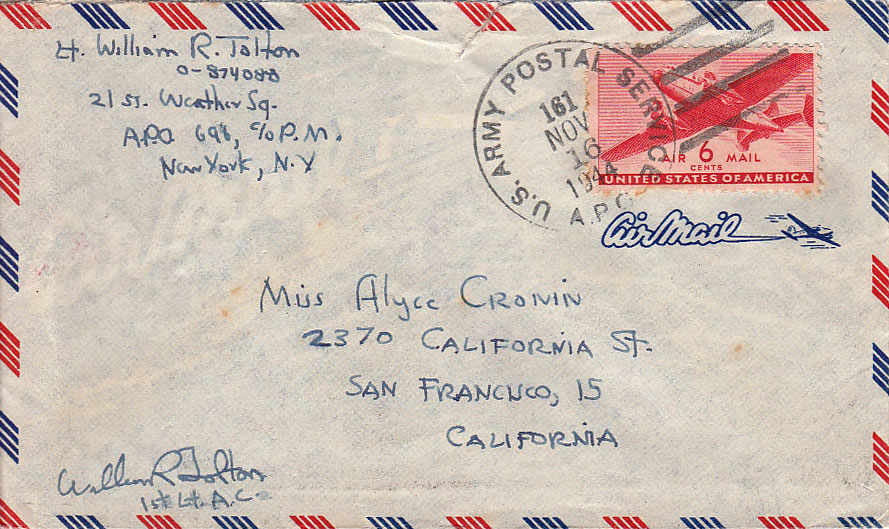 Lt. William R. Tolton
O-874088
21 ST. Weather Sq.
A.P.O. 696, c/o P.M.
New York, N.Y
U.S. ARMY POSTAL SERVICE
161
NOV
16
1944
A.P.O.
AIR 6 MAIL
CENTS
UNITED STATES OF AMERICA
Air Mail
Miss Alyce CRONIN
2370 CALIFORNIA St.
SAN FRANCISCO, 15
CALIFORNIA
William R Tolton
1st Lt. A.C.